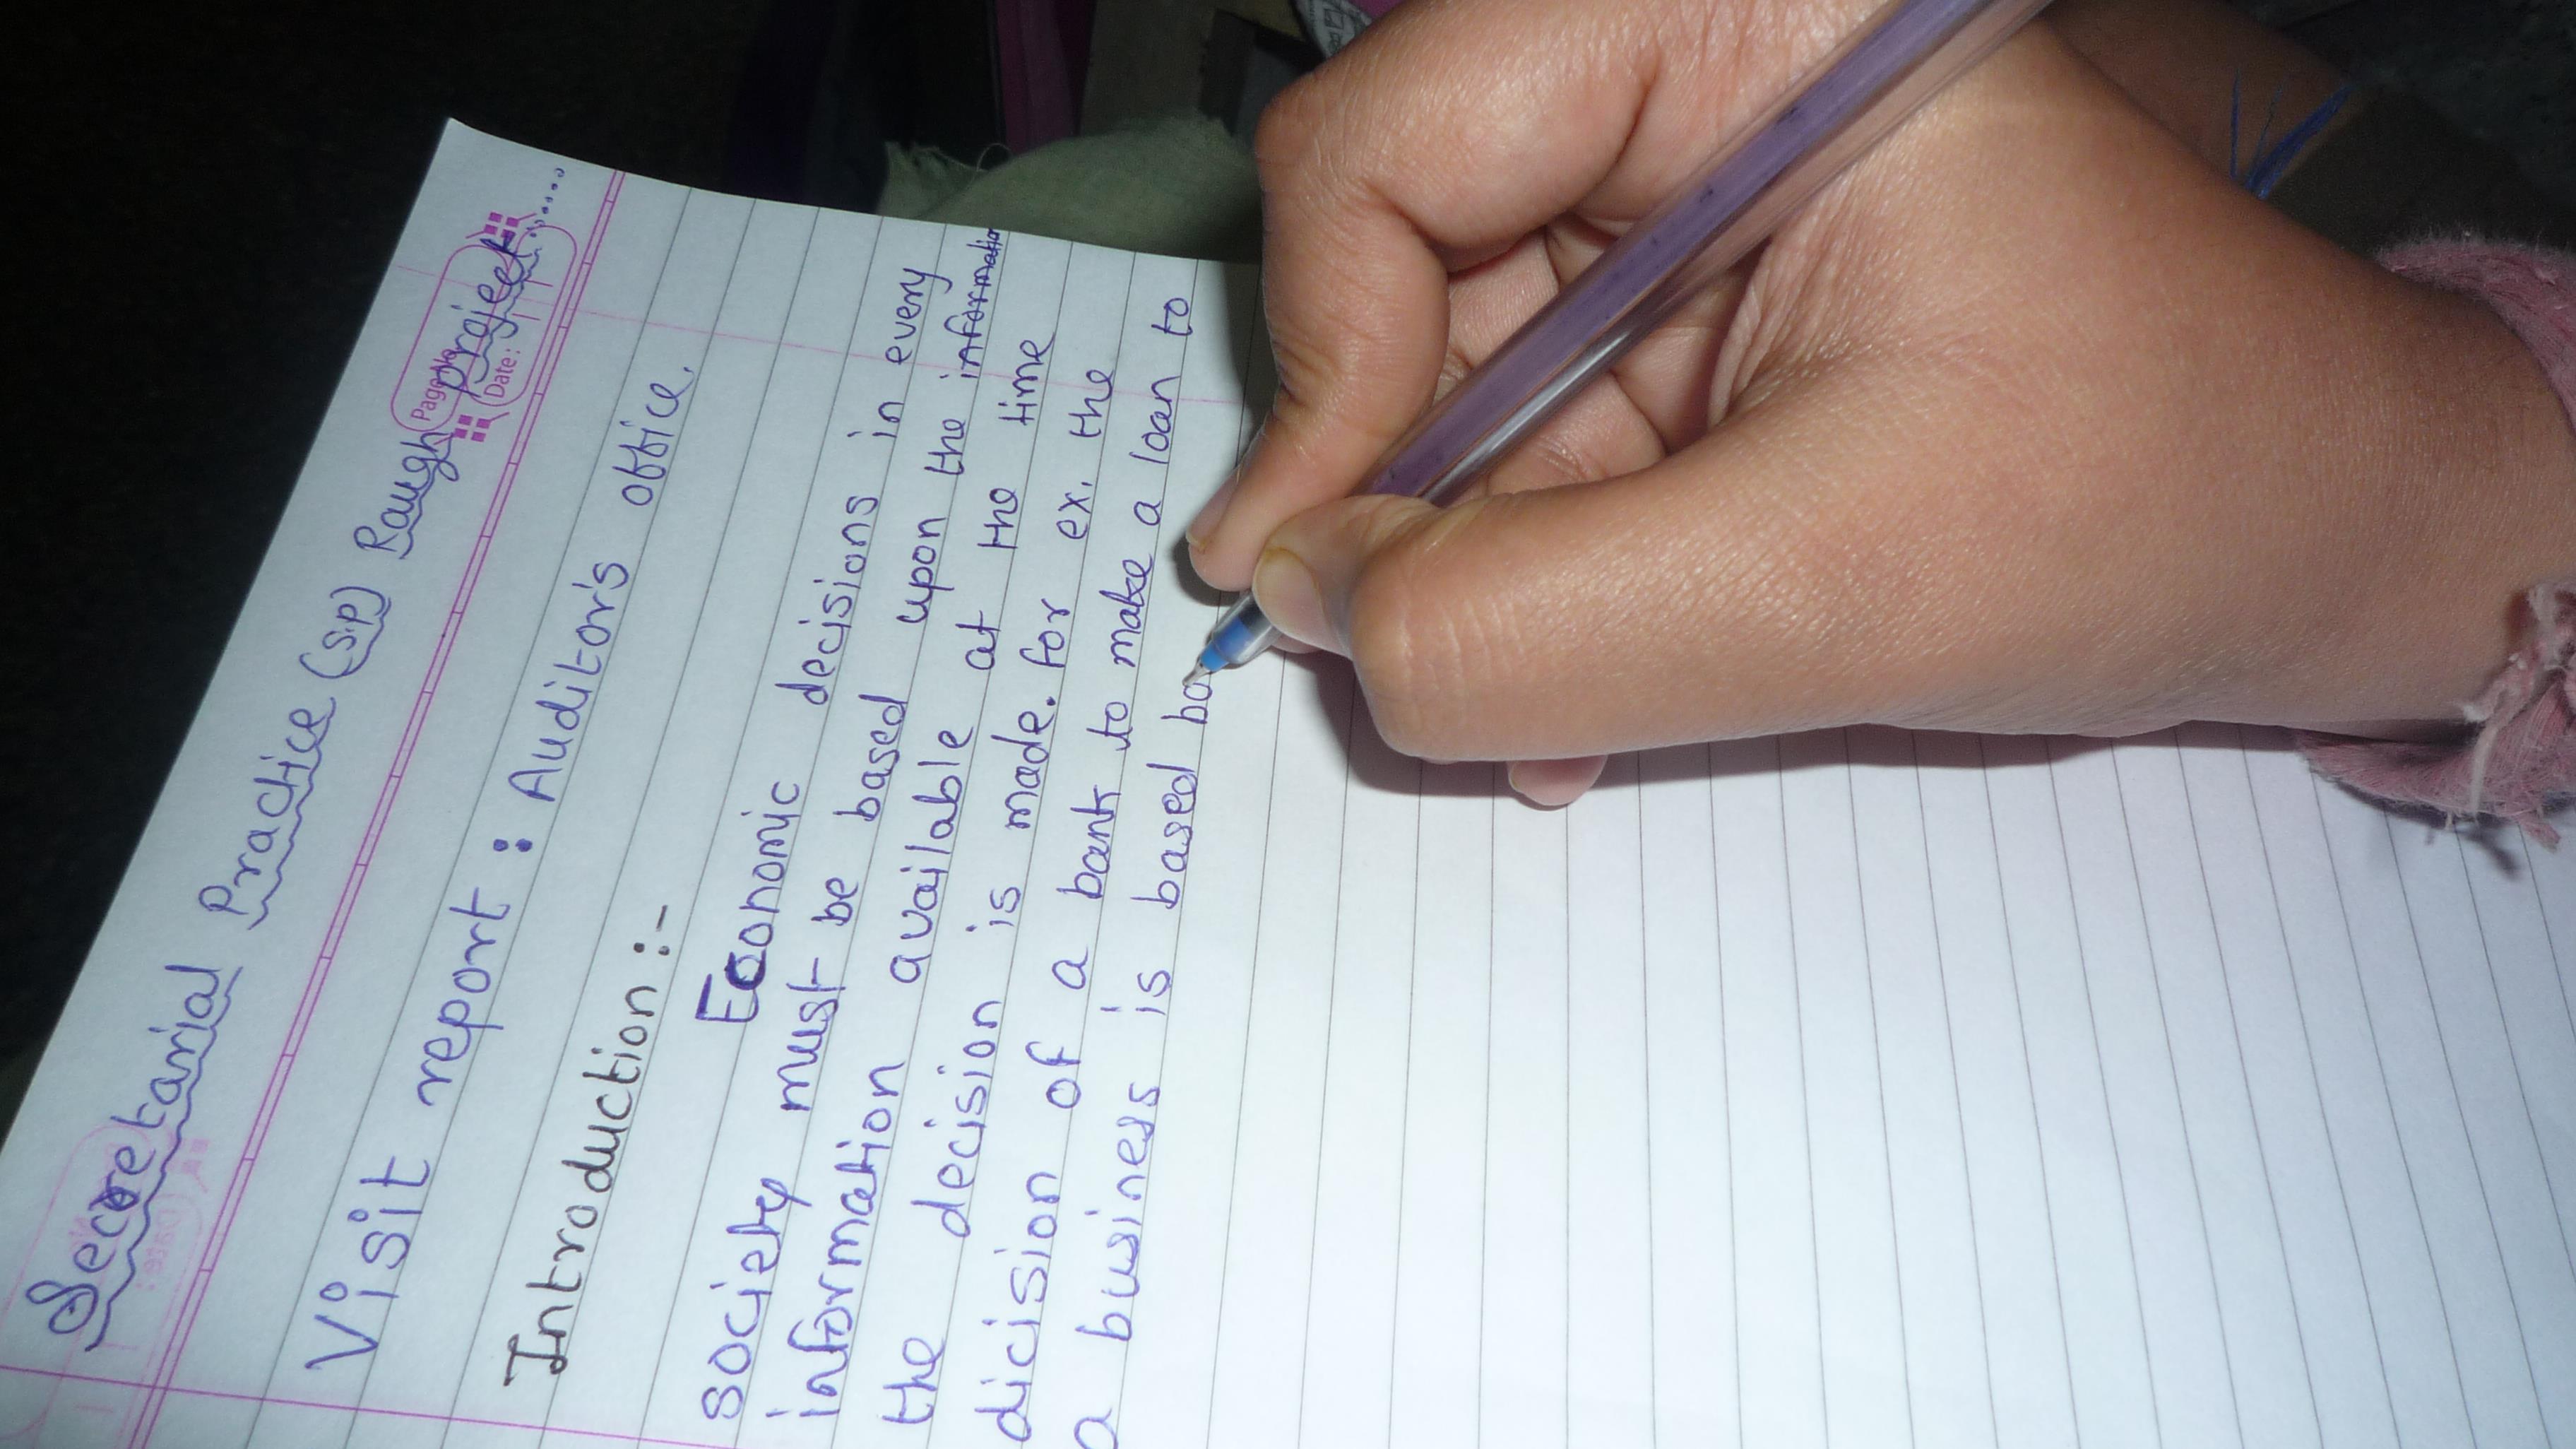 Secretarial Practice (S.P) Raugh project
Page No.
Date:
Visit report : Auditor's office.
Introduction :-
Economic decisions in every
society must be based upon the information
information available at the time
the decision is made. for ex. the
dicision of a bank to make a loan to
a business is based ba